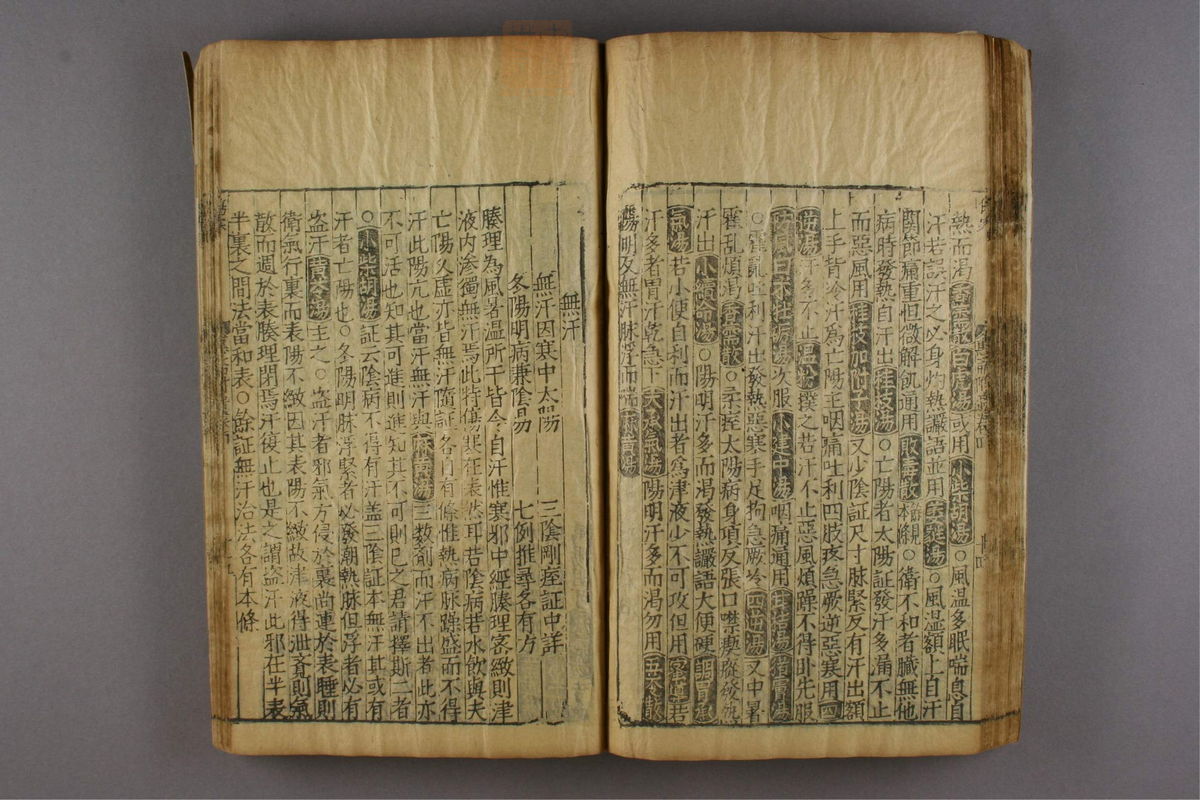 熱而渴香薷散白虎湯或用小柴胡湯○風温多眠喘息自
汗若誤汗之必身灼熱讝語並用萎蕤湯○風温額上自汗
關節痛重但微解飢通用敗毒散本條○衛不和者臟無他
病時發熱自汗出桂枝湯○亡陽者太陽証發汗多漏不止
而惡風用桂枝加附子湯又少陰証尺寸脉緊反有汗出額
上手背冷汗爲亡陽主咽痛吐利四肢疾急厥逆惡寒用四
逆湯汗多不止温粉撲之若汗不止惡風煩躁不得卧先服
防風白术牡蛎湯次服小建中湯咽痛通用甘桔湯
○霍亂吐利汗出發熱惡寒手足拘急厥冷四逆湯又中暑
霍乱煩渴香薷散○柔痓太陽病身項反張口噤瘈瘲發熱
汗出小續命湯○陽明汗多而渴發熱讝語大便硬調胃承
氣湯若小便自利而汗出者爲津液少不可攻但用蜜導若
汗多者胃汗乾急下大承氣湯陽明汗多而渴勿用五苓散
陽明反無汗脉浮而喘麻黄湯
無汗
無汗因寒中太陽 三陰剛痓証中詳
冬陽明病兼陰易 七例推尋各有方
腠理為風暑温所干皆令自汗惟寒邪中經腠理客緻則津
液内滲獨無汗焉此特傷寒在表然耳若陰病若水飲與夫
亡陽久虚亦皆無汗隨証各自有條惟熱病脉躁盛而不得
汗此陽亢也當汗無汗與麻黄湯三數劑而汗不出者此亦
不可活也知其可進則進知其不可則已之君請擇斯二者
○小柴胡湯証云陰病不得有汗盖三陰証本無汗其或有
汗者亡陽也○冬陽明脉浮緊者必發潮熱脉但浮者必有
盗汗黄芩湯主之○盗汗者邪氣方侵於裏尚連於表睡則
衛氣行裏而表陽不緻因其表陽不緻故津液得泄寤則氣
散而週於表腠理閉焉汗復止也是之謂盗汗此邪在半表
半裏之間法當和表○餘証無汗治法各有本條